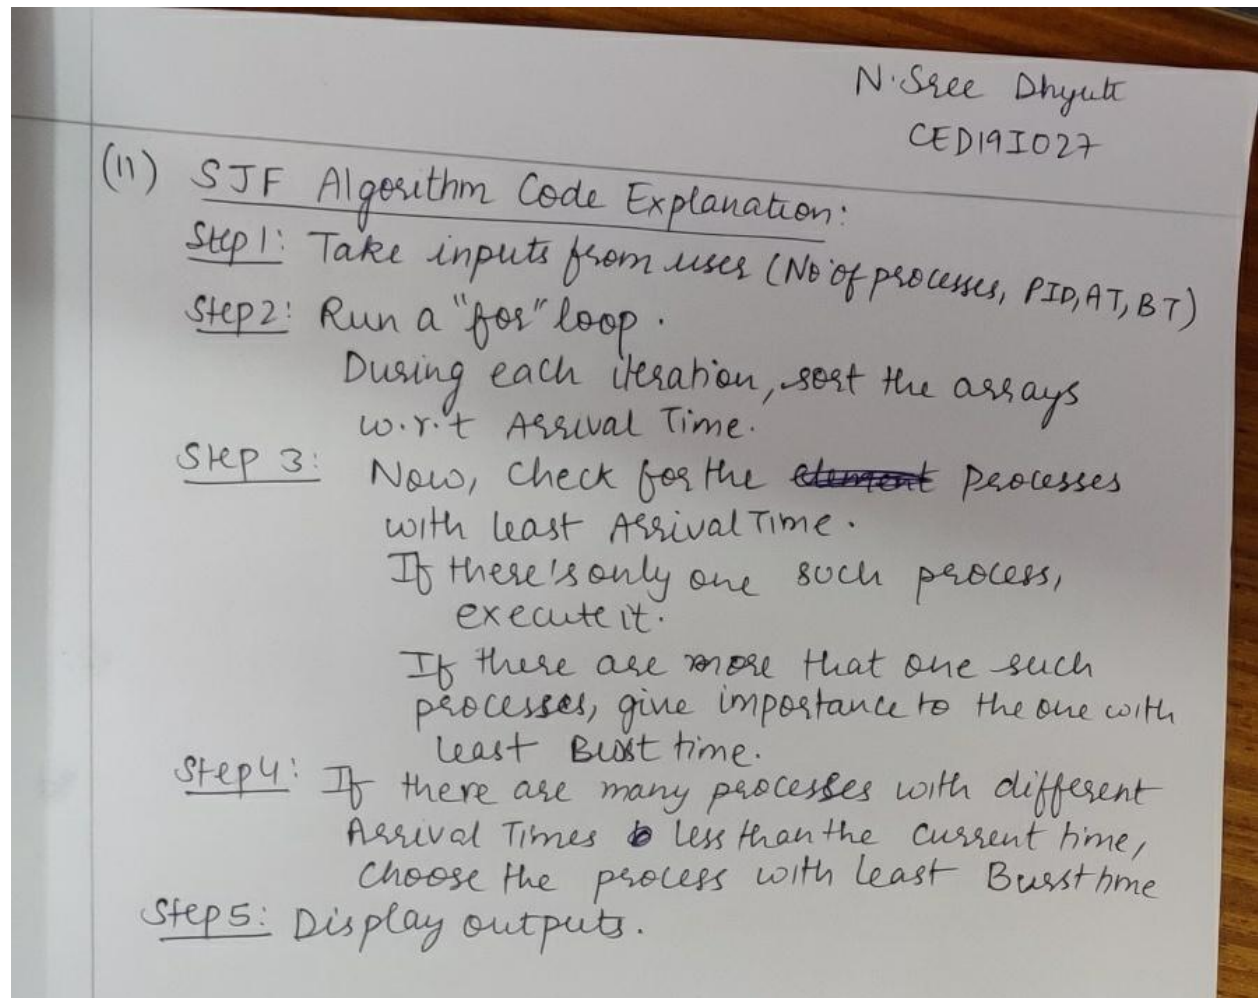 N. Sree Dhyuti
CED19I027
(11) SJF Algorithm Code Explanation:
Step 1: Take inputs from user (No of processes, PID, AT, BT)
Step 2: Run a "for" loop.
During each iteration, sort the arrays
w.r.t Arrival Time.
Step 3: Now, Check for the element processes
with least Arrival Time.
If there's only one such process,
execute it.
If there are more that one such
processes, give importance to the one with
least Burst time.
Step 4: If there are many processes with different
Arrival Times less than the current time,
choose the process with least Burst time
Step 5: Display outputs.